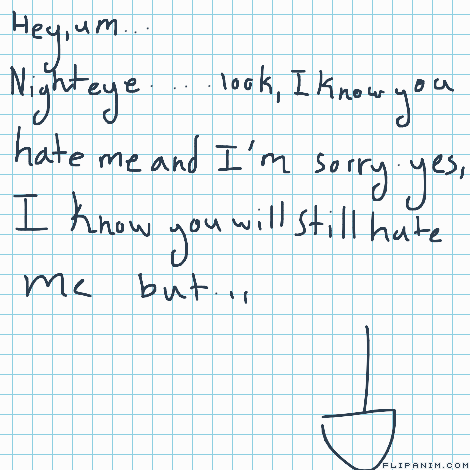 Hey, um...
Nighteye.... look, I know you
hate me and I'm sorry. yes,
I know you will still hate
me but...
FLIPANIM.COM